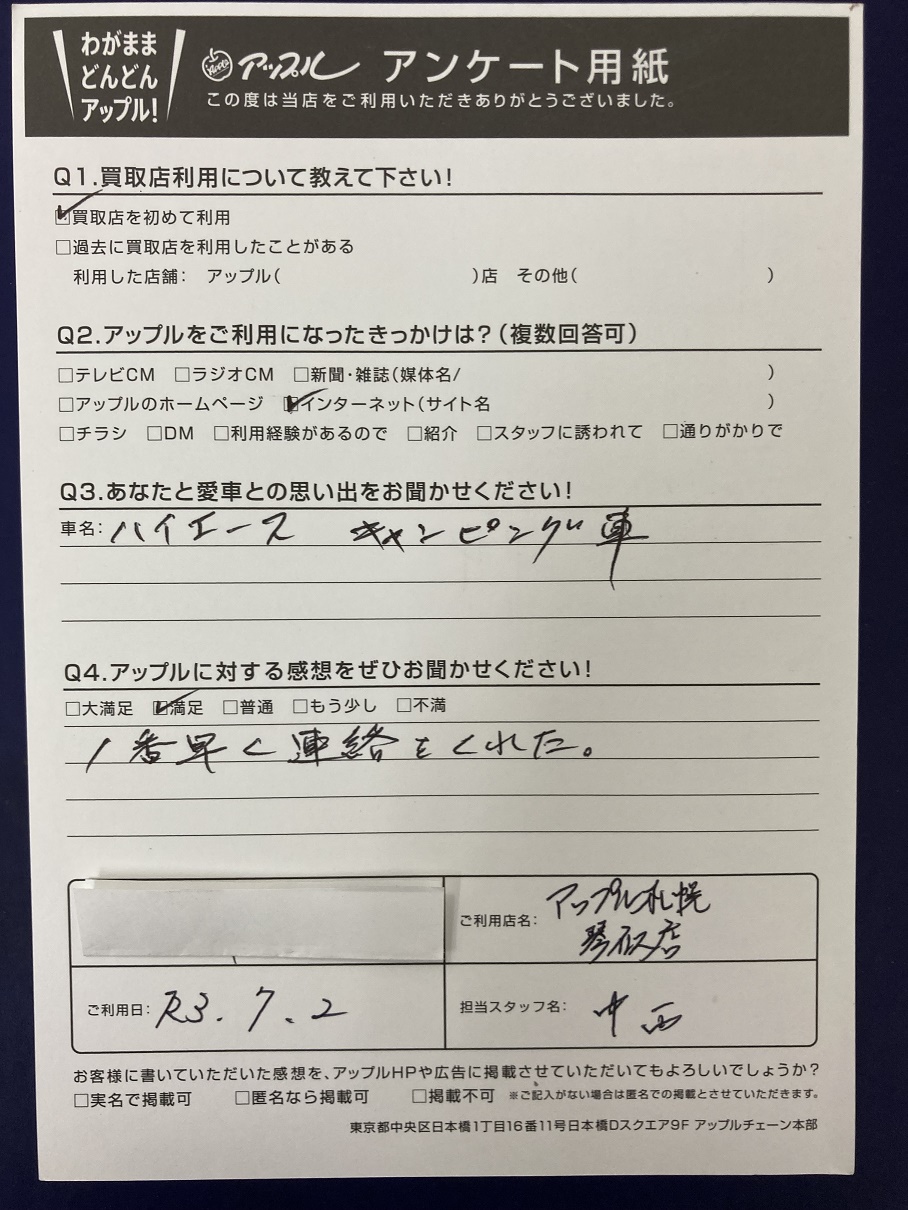 わがまま
どんどん
アップル!
アップル アンケート用紙
この度は当店をご利用いただきありがとうございました。
Q1.買取店利用について教えて下さい!
☑買取店を初めて利用
□過去に買取店を利用したことがある
利用した店舗: アップル( )店 その他( )
Q2.アップルをご利用になったきっかけは?(複数回答可)
□テレビCM □ラジオCM □新聞・雑誌(媒体名/ )
□アップルのホームページ ☑インターネット(サイト名 )
□チラシ □DM □利用経験があるので □紹介 □スタッフに誘われて □通りがかりで
Q3.あなたと愛車との思い出をお聞かせください!
車名: ハイエース キャンピング車
Q4.アップルに対する感想をぜひお聞かせください!
□大満足 ☑満足 □普通 □もう少し □不満
1番早く連絡をくれた。
ご利用店名: アップル札幌
琴石店
ご利用日: R3.7.2
担当スタッフ名: 中西
お客様に書いていただいた感想を、アップルHPや広告に掲載させていただいてもよろしいでしょうか?
□実名で掲載可 □匿名なら掲載可 □掲載不可 ※ご記入がない場合は匿名での掲載とさせていただきます。
東京都中央区日本橋1丁目16番11号日本橋Dスクエア9F アップルチェーン本部